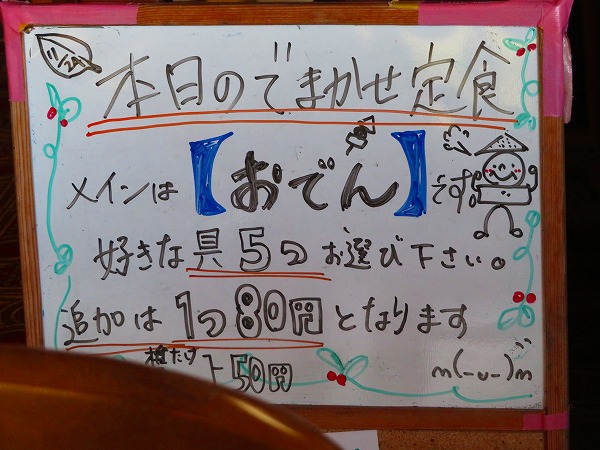 11/24
本日のでまかせ定食
メインは【おでん】です。
好きな具5つお選び下さい。
追加は1つ80円となります
種だけ
150円
m(-u-)m